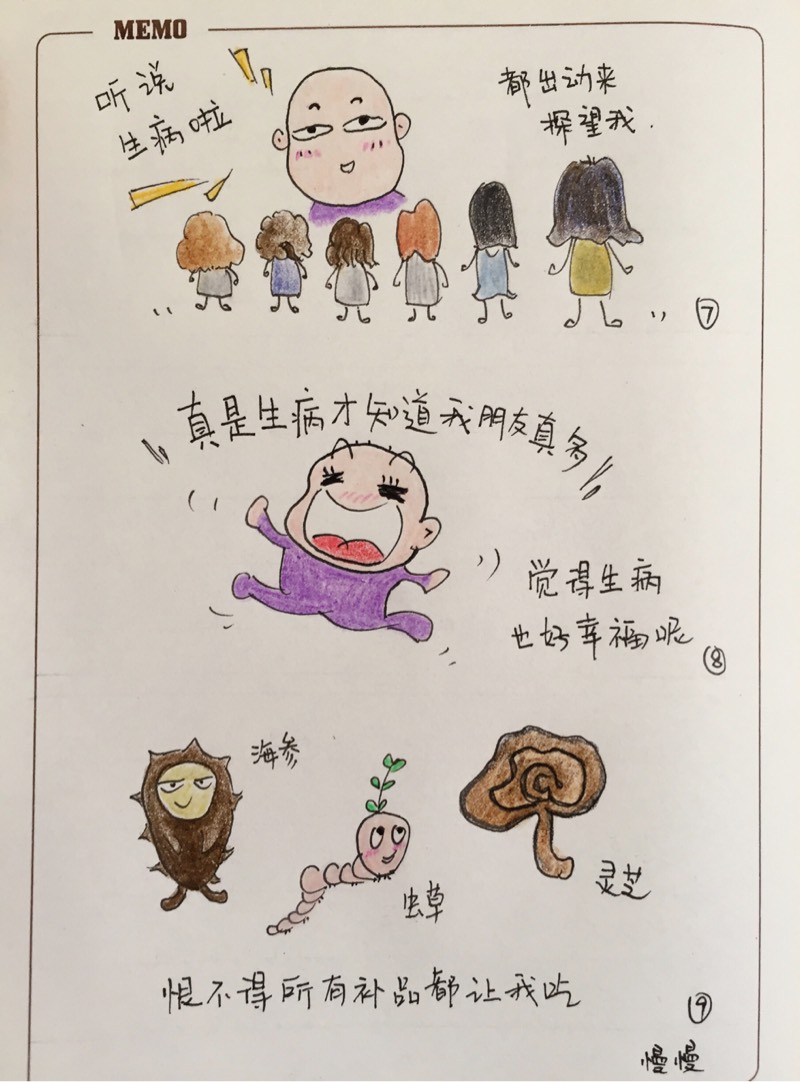 MEMO
听说
生病啦
都出动来
探望我.
⑦
真是生病才知道我朋友真多
觉得生病
也好幸福呢
⑧
海参
虫草
灵芝
恨不得所有补品都让我吃
⑨
慢慢